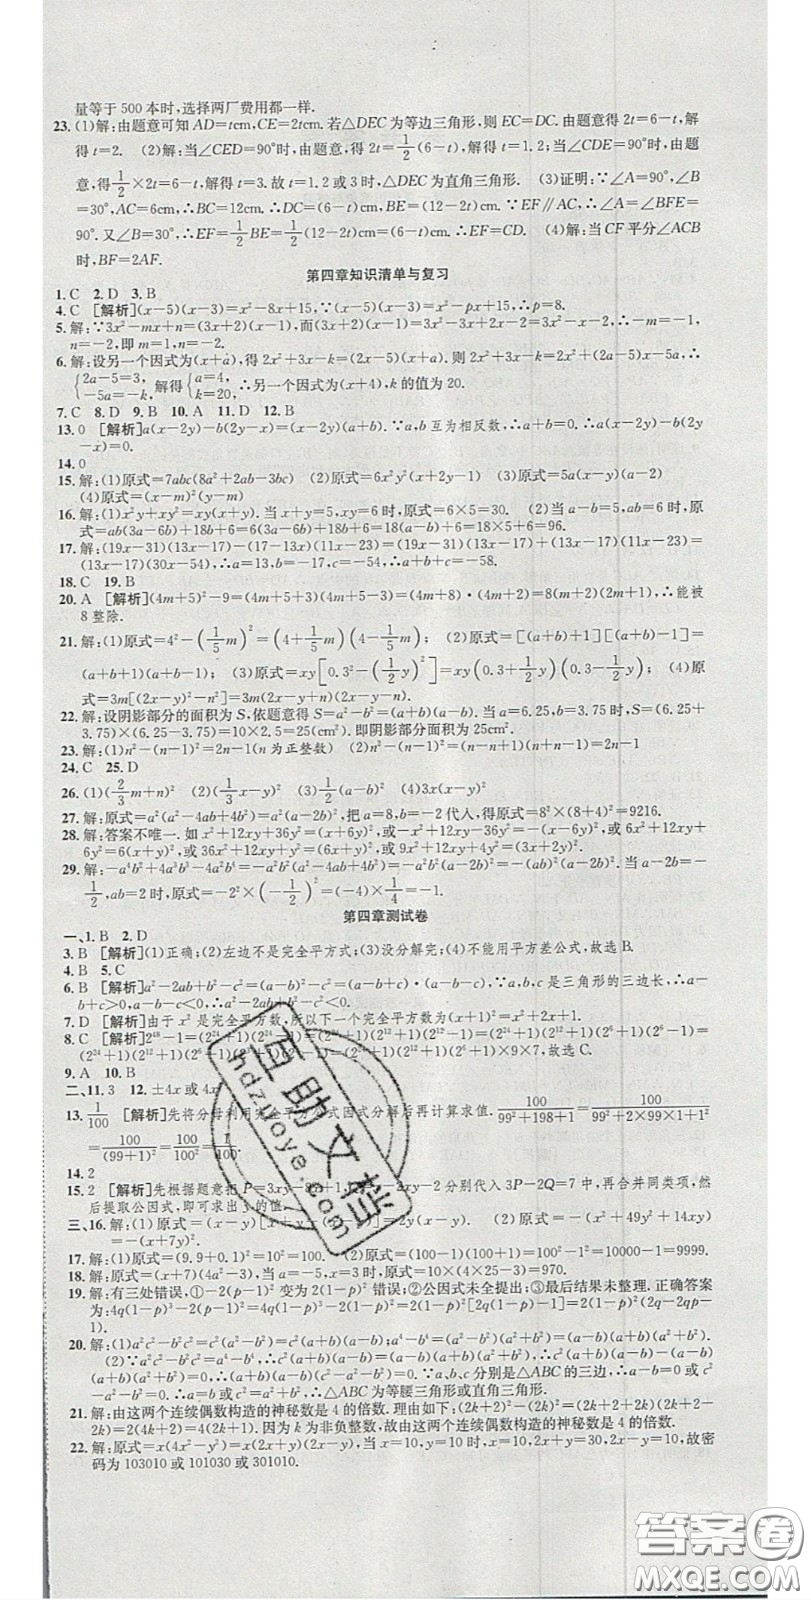 量等于 500 本时,选择两厂费用都一样.
23. (1)解:由题意可知 AD=tcm,CE=2tcm.若△DEC 为等边三角形,则 EC=DC.由题意得 2t=6-t,解
得 t=2. (2)解:当∠CED=90°时,由题意得 2t=1/2(6-t),解得 t=1.2;当∠CDE=90°时,由题
意,得 1/2×2t=6-t,解得 t=3.故 t=1.2 或 3 时,△DEC 为直角三角形. (3)证明:∵∠A=90°,∠B
=30°,AC=6cm,∴BC=12cm.∴DC=(6-t)cm,BE=(12-2t)cm.∵EF∥AC,∴∠A=∠BFE=
90°.又∠B=30°,∴EF=1/2BE=1/2(12-2t)=(6-t)cm.∴EF=CD. (4)解:当 CF 平分∠ACB
时,BF=2AF.
第四章知识清单与复习
1. C 2. D 3. B
4. C [解析](x-5)(x-3)=x²-8x+15,∵(x-5)(x-3)=x²-px+15,∴p=8.
5. 解:∵3x²-mx+n=(3x+2)(x-1),而(3x+2)(x-1)=3x²-3x+2x-2=3x²-x-2,∴-m=-1,
n=-2,即 m=1,n=-2.
6. 解:设另一个因式为(x+a),得 2x²+3x-k=(2x-5)(x+a).则 2x²+3x-k=2x²+(2a-5)x-5a,
∴{2a-5=3, -5a=-k, 解得{a=4, k=20, ∴另一个因式为(x+4),k 的值为 20.
7. C 8. D 9. B 10. A 11. D 12. B
13. 0 [解析]a(x-2y)-b(2y-x)=(x-2y)(a+b).∵a,b 互为相反数,∴a+b=0.∴a(x-2y)-b(2y
-x)=0.
14. 0
15. 解:(1)原式=7abc(8a²+2ab-3bc) (2)原式=6x²y²(x+2y-1) (3)原式=5a(x-y)(a-2)
(4)原式=(x-m)²(y-m)
16. 解:(1)x²y+xy²=xy(x+y).当 x+y=5,xy=6 时,原式=6×5=30. (2)当 a-b=5,ab=6 时,原
式=ab(3a-6b)+18b+6=6(3a-6b)+18b+6=18(a-b)+6=18×5+6=96.
17. 解:(19x-31)(13x-17)-(17-13x)(11x-23)=(13x-17)(19x-31+11x-23)=
(13x-17)(30x-54),∴a=13,b=-17,c=-54,∴a+b+c=-58.
18. C 19. B
20. A [解析](4m+5)²-9=(4m+5+3)(4m+5-3)=(4m+8)·(4m+2)=8(m+2)(2m+1),∴能被
8 整除.
21. 解:(1)原式=4²-(1/5m)²=(4+1/5m)(4-1/5m); (2)原式=[(a+b)+1][(a+b)-1]=
(a+b+1)(a+b-1); (3)原式=xy[0.3²-(1/2y)²]=xy(0.3+1/2y)(0.3-1/2y); (4)原
式=3m[(2x-y)²-n²]=3m(2x-y+n)(2x-y-n).
22. 解:设阴影部分的面积为 S,依题意得 S=a²-b²=(a+b)(a-b).当 a=6.25,b=3.75 时,S=(6.25+
3.75)×(6.25-3.75)=10×2.5=25(cm²).即阴影部分面积为 25cm².
23. 解:(1)n²-(n-1)²=2n-1(n 为正整数) (2)n²-(n-1)²=(n+n-1)(n-n+1)=2n-1
24. C 25. D
26. (1)(2/3m+n)² (2)(1/3x-y)² (3)1/2(a-b)² (4)3x(x-y)²
27. 解:原式=a²(a²-4ab+4b²)=a²(a-2b)²,把 a=8,b=-2 代入,得原式=8²×(8+4)²=9216.
28. 解:答案不唯一.如 x²+12xy+36y²=(x+6y)²,或-x²+12xy-36y²=-(x-6y)²,或 6x²+12xy+
6y²=6(x+y)²,或 4x²+12xy+9y²=(2x+3y)²,或 9x²+12xy+4y²=(3x+2y)².
29. 解:-a⁴b²+4a³b³-4a²b⁴=-a²b²(a²-4ab+4b²)=-a²b²(a-2b)²=-(ab)²(a-2b)².当 a-2b=-
1/2,ab=2 时,原式=-2²×(-1/2)²=(-4)×1/4=-1.
第四章测试卷
一、1. B 2. D
3. B [解析](1)正确;(2)左边不是完全平方式;(3)没分解完;(4)不能用平方差公式,故选 B.
4. B 5. C
6. B [解析]a²-2ab+b²-c²=(a-b)²-c²=(a-b+c)·(a-b-c).∵a,b,c 是三角形的三边长,∴a-
b+c>0,a-b-c<0,∴a²-2ab+b²-c²<0.
7. D [解析]由于 x² 是完全平方数,所以下一个完全平方数为(x+1)²=x²+2x+1.
8. C [解析]2⁴⁸-1=(2²⁴+1)(2²⁴-1)=(2²⁴+1)(2¹²+1)(2¹²-1)=(2²⁴+1)(2¹²+1)(2⁶+1)(2⁶-1)=
(2²⁴+1)(2¹²+1)(2⁶+1)(2³+1)(2³-1)=(2²⁴+1)(2¹²+1)(2⁶+1)×9×7,故选 C.
9. A 10. B
二、11. 3 12. ±4x 或 4x⁴
13. 1/100 [解析]先将分母利用完全平方公式因式分解后再计算求值. 100/(99²+198+1)=100/(99²+2×99×1+1²)
=100/(99+1)²=100/100²=1/100.
14. 2
15. 2 [解析]先根据题意把 P=3xy-8x+1,Q=x-2xy-2 分别代入 3P-2Q=7 中,再合并同类项,然
后提取公因式,即可求出 x 的值.
三、16. 解:(1)原式=(x-y)[x+y-(x-y)]=2y(x-y). (2)原式=-(x²+49y²+14xy)
=-(x+7y)².
17. 解:(1)原式=(9.9+0.1)²=10²=100. (2)原式=(100-1)(100+1)=100²-1=10000-1=9999.
18. 解:原式=(x+7)(4a²-3).当 a=-5,x=3 时,原式=10×(4×25-3)=970.
19. 解:有三处错误,①-2(p-1)² 变为 2(1-p)² 错误;②公因式未全提出;③最后结果未整理.正确答案
为:4q(1-p)³-2(p-1)²=4q(1-p)³-2(1-p)²=2(1-p)²[2q(1-p)-1]=2(1-p)²(2q-2qp-
1).
20. 解:(1)a²c²-b²c²=c²(a²-b²)=c²(a+b)(a-b);a⁴-b⁴=(a²-b²)(a²+b²)=(a-b)(a+b)(a²+b²).
(2)∵a²c²-b²c²=a⁴-b⁴,∴c²(a+b)(a-b)=(a+b)(a-b)(a²+b²),∴(a+b)(a-b)(c²-a²-
b²)=0,∵a,b,c 为△ABC 的三边,∴a-b=0 或 c²-
a²-b²=0,∴a=b 或 a²+b²=c²,∴△ABC 为等腰三角形或直角三角形.
21. 解:由这两个连续偶数构造的神秘数是 4 的倍数.理由如下:(2k+2)²-(2k)²=(2k+2+2k)(2k+2-
2k)=2(4k+2)=4(2k+1).因为 k 为非负整数,故由这两个连续偶数构造的神秘数是 4 的倍数.
22. 解:原式=x(4x²-y²)=x(2x+y)(2x-y),当 x=10,y=10 时,x=10,2x+y=30,2x-y=10,故密
码为 103010 或 101030 或 301010.
互助文档
hdzuoye.com
答案圈
MXQE.COM